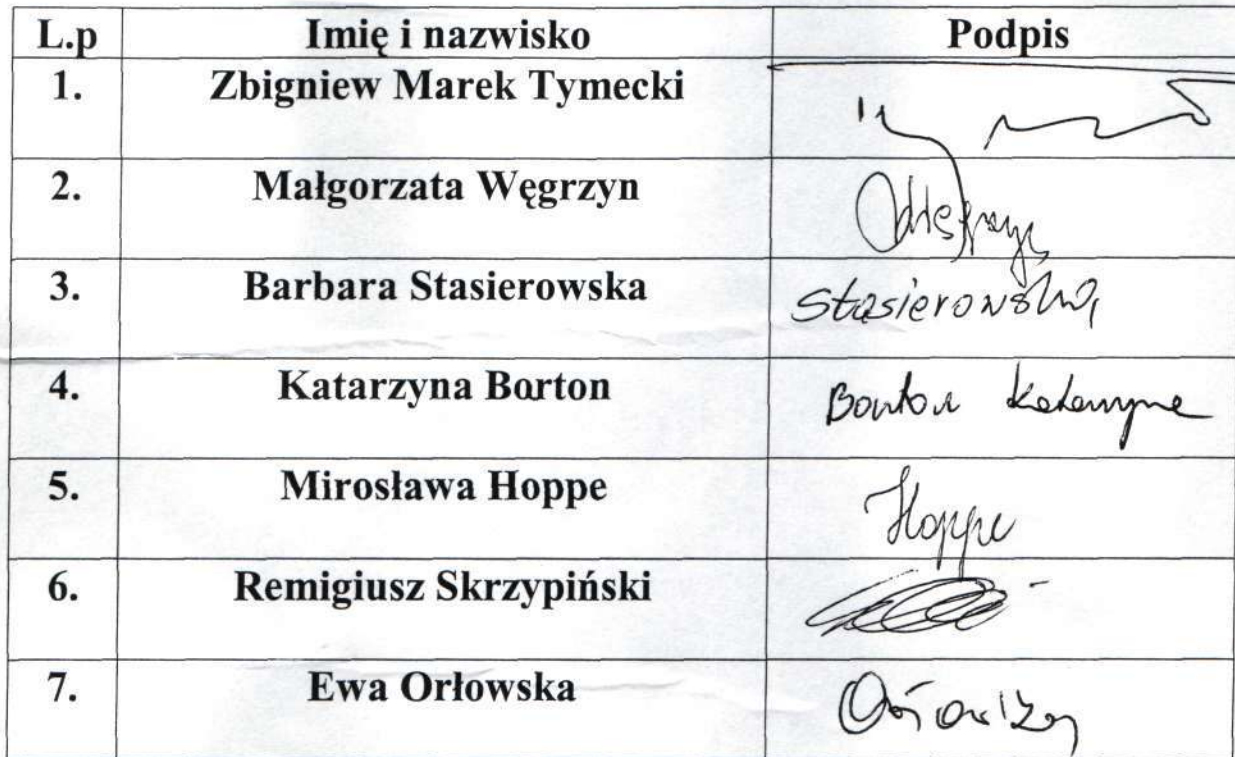 L.p Imię i nazwisko Podpis
1. Zbigniew Marek Tymecki
2. Małgorzata Węgrzyn
3. Barbara Stasierowska Stasierowska
4. Katarzyna Borton Borton Katarzyna
5. Mirosława Hoppe Hoppe
6. Remigiusz Skrzypiński
7. Ewa Orłowska